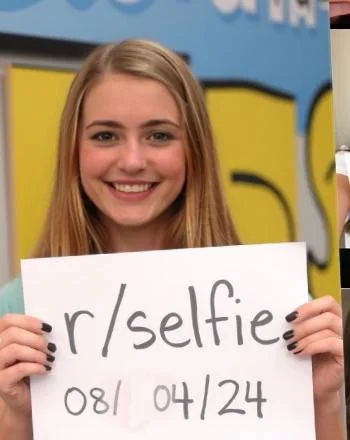 r/selfie
08/ 04/24